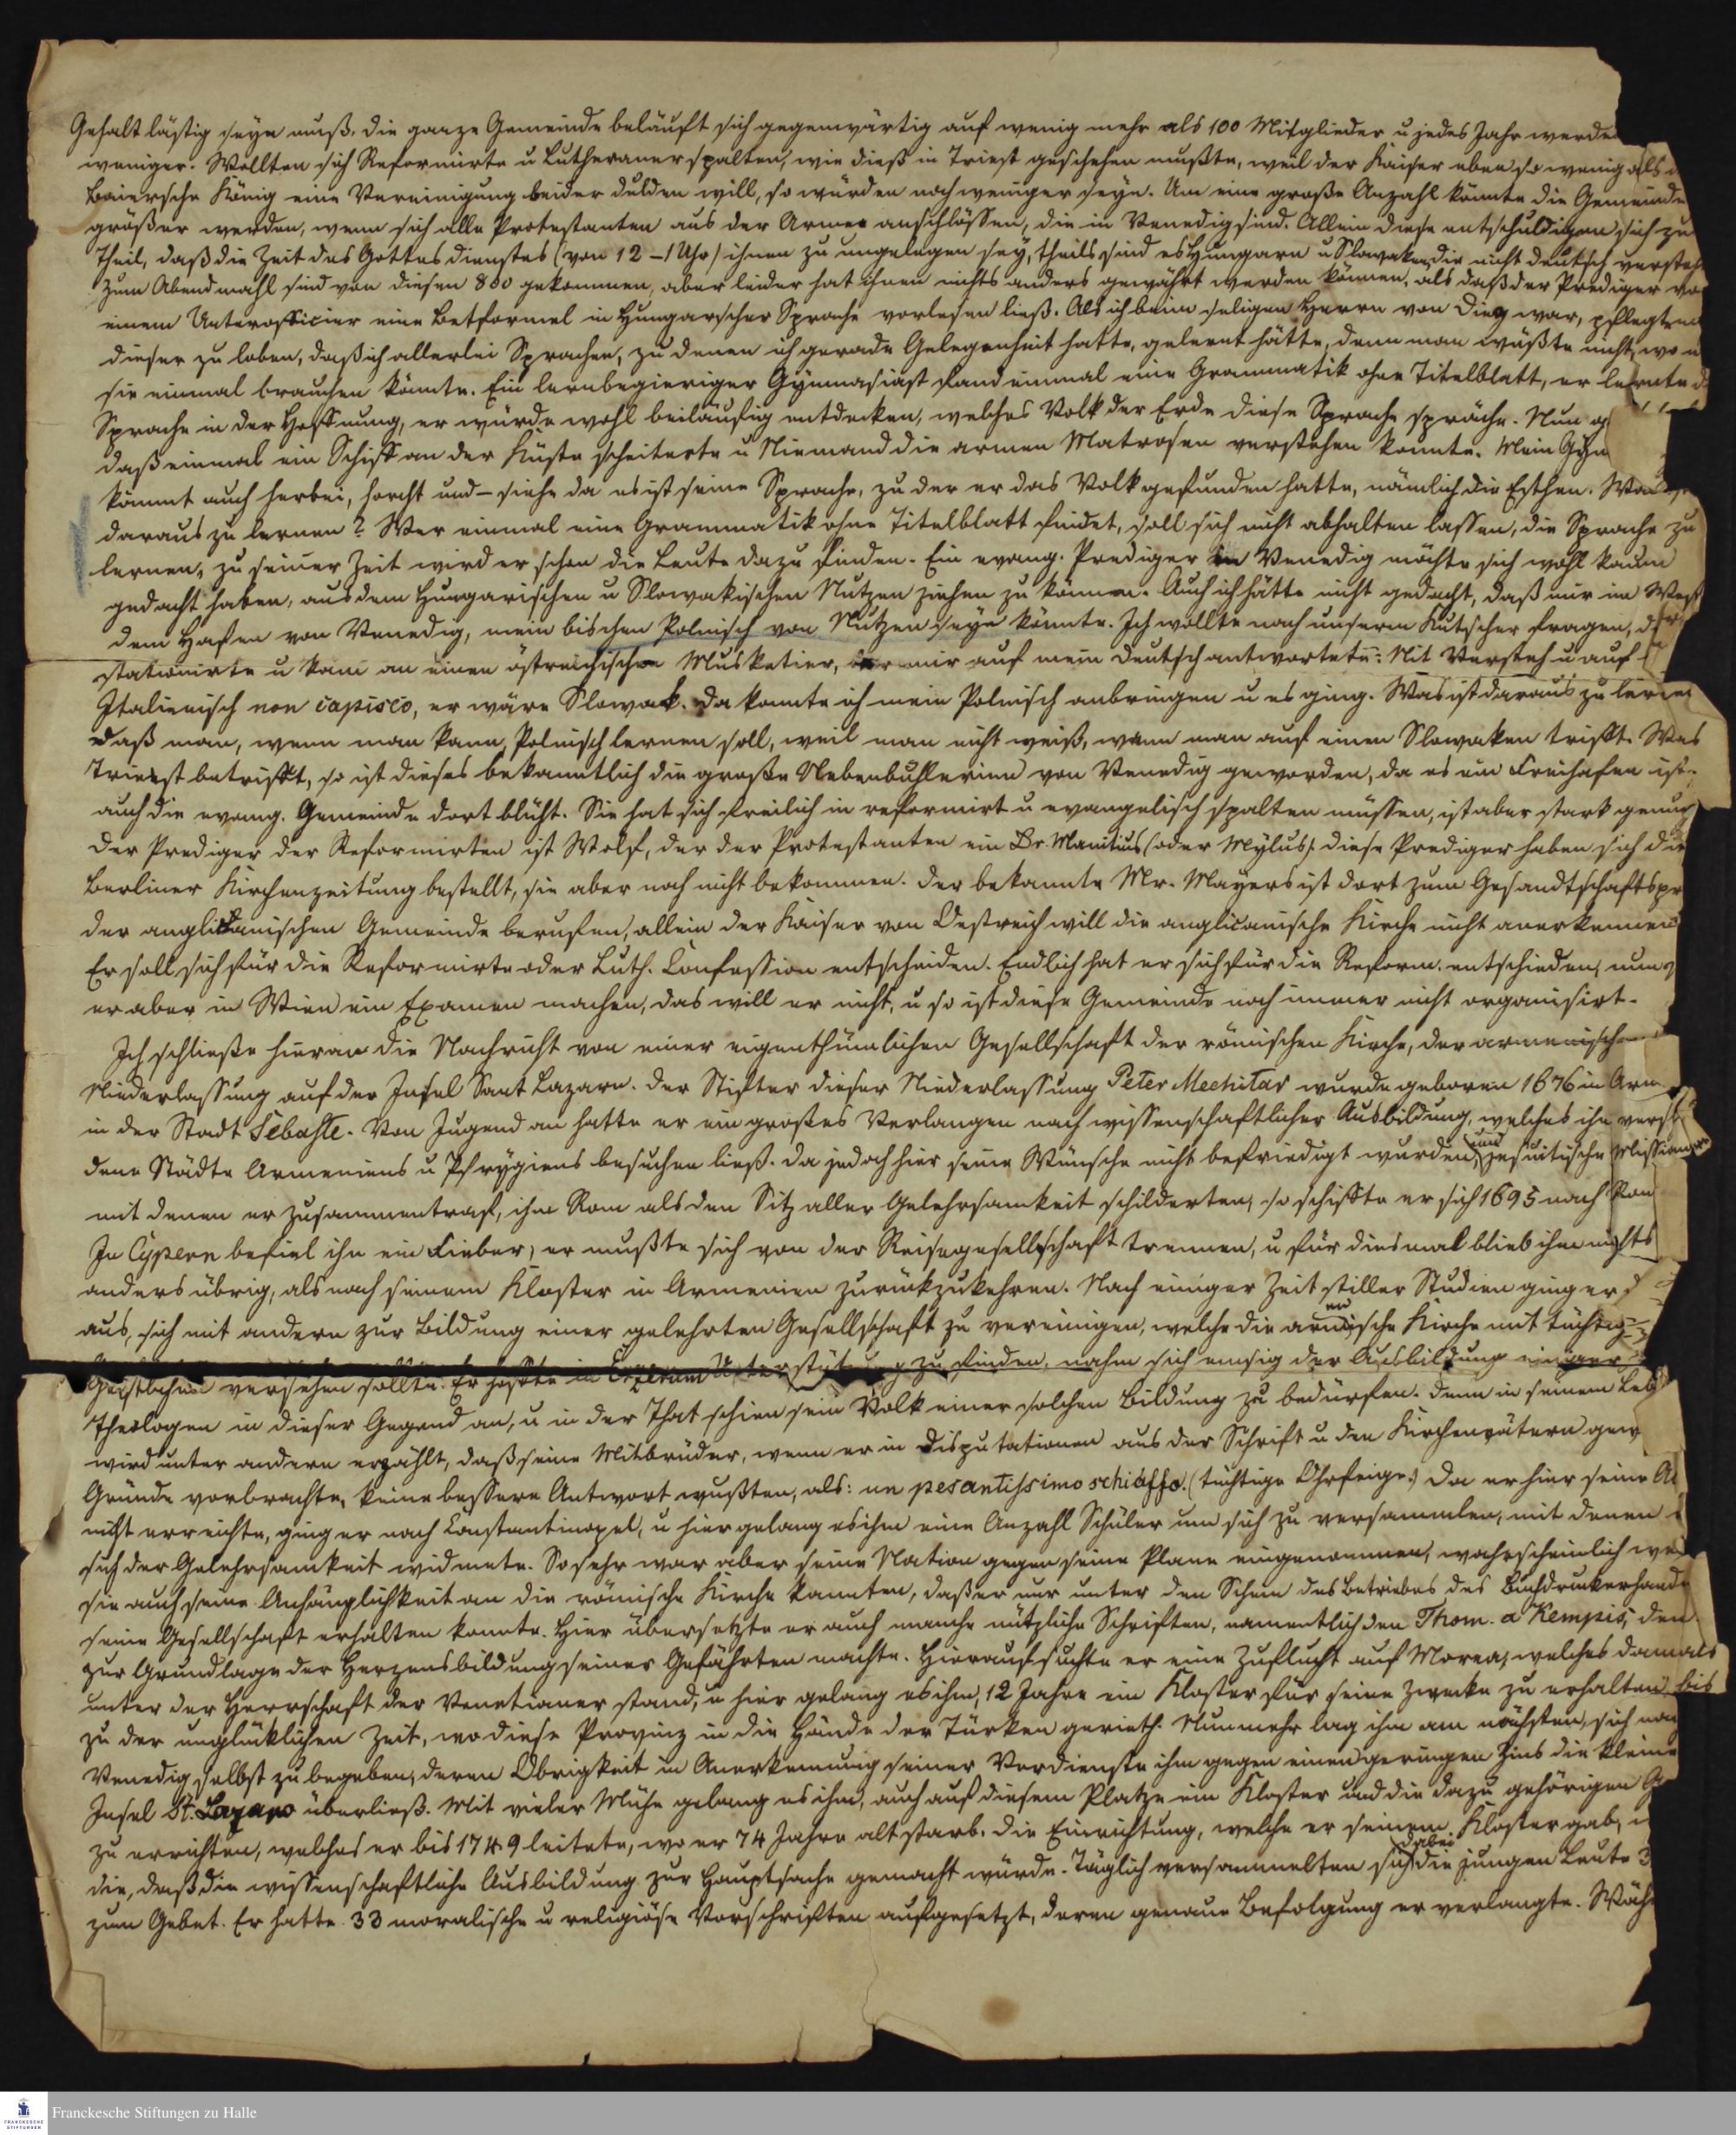 Gehalt lästig seyn muß. Die ganze Gemeinde beläuft sich gegenwärtig auf wenig mehr als 100 Mitglieder u jedes Jahr werde
weniger. Wollten sich Reformirte u Lutheraner spalten, wie dieß in Triest geschehen mußte, weil der Kaiser eben so wenig als
Baiersche König eine Vereinigung beider dulden will, so würden noch weniger seyn. Um eine große Anzahl könnte die Gemeinde
größer werden, wenn sich alle Protestanten aus der Armee anschlössen, die in Venedig sind. Allein diese entschuldigen sich zu
Theil, daß die Zeit des Gottesdienstes (von 12 – 1 Uhr) ihnen zu ungelegen sey, theils sind es Hungarn u Slowaken, die nicht deutsch versteh
Zum Abendmahl sind von diesen 800 gekommen, aber leider hat ihnen nichts anders gewährt werden können, als daß der Prediger vo
einem Unterofficier eine Betformel in Hungarscher Sprache vorlesen ließ. Als ich beim seligen Herrn von Diez war, pflegte
dieser zu loben, daß ich allerlei Sprachen, zu denen ich gerade Gelegenheit hatte, gelernt hätte, denn man wüßte nicht, wo
sie einmal brauchen könnte. Ein lernbegieriger Gymnasiast fand einmal eine Grammatik ohne Titelblatt, er lernte d
Sprache in der Hoffnung, er würde wohl beiläufig entdecken, welches Volk der Erde diese Sprache spräche. Nun
daß einmal ein Schiff an der Küste scheiterte u Niemand die armen Matrosen verstehen konnte. Mein Gym
kommt auch herbei, horcht und – siehe da es ist seine Sprache, zu der er das Volk gefunden hatte, nämlich die Esthen. Was
daraus zu lernen? Wer einmal eine Grammatik ohne Titelblatt findet, soll sich nicht abhalten lassen, die Sprache zu
lernen, zu seiner Zeit wird er schon die Leute dazu finden. Ein evang. Prediger in Venedig möchte sich wohl kaum
gedacht haben, aus dem Hungarischen u Slowakischen Nutzen ziehen zu können. Auch ich hätte nicht gedacht, daß mir in
dem Hafen von Venedig, mein bischen Polnisch von Nutzen seyn könnte. Ich wollte nach unserm Kutscher fragen, d
stationirte u kam an einen östreichischen Musketier, der mir auf mein Deutsch antwortete: Nit Versteh u auf
Italienisch non capisco, er wäre Slowak. Da konnte ich mein Polnisch anbringen u es ging. Was ist daraus zu lerne
Daß man, wenn man kann, Polnisch lernen soll, weil man nicht weiß, wann man auf einen Slowaken trifft. Was
Triest betrifft, so ist dieses bekanntlich die große Nebenbuhlerinn von Venedig geworden, da es ein Freihafen ist
auch die evang. Gemeinde dort blüht. Sie hat sich freilich in reformirt u evangelisch spalten müssen, ist aber stark genug
Der Prediger der Reformirten ist Wolf, der der Protestanten ein Dr. Manitius (oder Mylus). Diese Prediger haben sich die
Berliner Kirchenzeitung bestellt, sie aber noch nicht bekommen. Der bekannte Mr. Mayers ist dort zum Gesandtschaftspr
der anglicanischen Gemeinde berufen, allein der Kaiser von Oestreich will die anglicanische Kirche nicht anerkennen
Er soll sich für die Reformirte oder Luth. Confession entscheiden. Endlich hat er sich für die Reform. entschieden, nun
er aber in Wien ein Examen machen, das will er nicht, u so ist diese Gemeinde noch immer nicht organisirt.
Ich schließe hieran die Nachricht von einer eigenthümlichen Gesellschaft der römischen Kirche, der armenischen
Niederlassung auf der Insel Sant Lazaro. Der Stifter dieser Niederlassung Peter Mechitar wurde geboren 1676 in Arm
in der Stadt Sebaste. Von Jugend an hatte er ein großes Verlangen nach wissenschaftlicher Ausbildung, welches ihn versch
dene Städte Armeniens u Phrygiens besuchen ließ. Da jedoch hier seine Wünsche nicht befriedigt wurden, und jesuitische Missionare
mit denen er zusammentraf, ihm Rom als den Sitz aller Gelehrsamkeit schilderten, so schiffte er sich 1695 nach Rom
In Cypern befiel ihn ein Fieber, er mußte sich von der Reisegesellschaft trennen, u für diesmal blieb ihm nichts
anders übrig, als nach seinem Kloster in Armenien zurückzukehren. Nach einiger Zeit stiller Studien ging er
aus, sich mit andern zur Bildung einer gelehrten Gesellschaft zu vereinigen, welche die armenische Kirche mit tüchtig
Geistlichen versehen sollte. Er hoffte in Erzerum Unterstützung zu finden, nahm sich emsig der Ausbildung einiger
Theologen in dieser Gegend an, u in der That schien sein Volk einer solchen Bildung zu bedürfen. Denn in seinem Leb
wird unter andern erzählt, daß seine Mitbrüder, wenn er in Disputationen aus der Schrift u den Kirchenvätern
Gründe vorbrachte, keine bessere Antwort wußten, als: un pesantissimo schiaffo. (tüchtige Ohrfeige.) Da er hier seine
nicht erreichte, ging er nach Constantinopel, u hier gelang es ihm eine Anzahl Schüler um sich zu versammlen, mit denen
sich der Gelehrsamkeit widmete. So sehr war aber seine Nation gegen seine Plane eingenommen, wahrscheinlich wei
sie auch seine Anhänglichkeit an die römische Kirche kannten, daß er nur unter den Schein des Betriebes des Buchdruckerhand
seine Gesellschaft erhalten konnte. Hier übersetzte er auch manche nützliche Schriften, namentlich den Thom. a Kempis, den
zur Grundlage der Herzensbildung seiner Gefährten machte. Hierauf suchte er eine Zuflucht auf Morea, welches damals
unter der Herrschaft der Venetianer stand, u hier gelang es ihm, 12 Jahre ein Kloster für seine Zwecke zu erhalten bis
zu der unglücklichen Zeit, wo diese Provinz in die Hände der Türken gerieth. Nunmehr lag ihm am nächsten, sich nach
Venedig selbst zu begeben, deren Obrigkeit in Anerkennung seiner Verdienste ihm gegen einen geringen Zins die kleine
Insel St. Lazaro überließ. Mit vieler Mühe gelang es ihm, auch auf diesem Platze ein Kloster und die dazu gehörigen
zu errichten, welches er bis 1749 leitete, wo er 74 Jahre alt starb. Die Einrichtung, welche er seinem Kloster gab,
die, daß die wissenschaftliche Ausbildung zur Hauptsache gemacht würde. Täglich versammelten sich dabei die jungen Leute 3
zum Gebet. Er hatte 33 moralische u religiöse Vorschriften aufgesetzt, deren genaue Befolgung er verlangte. Wäh
FRANCKESCHE STIFTUNGEN
Franckesche Stiftungen zu Halle